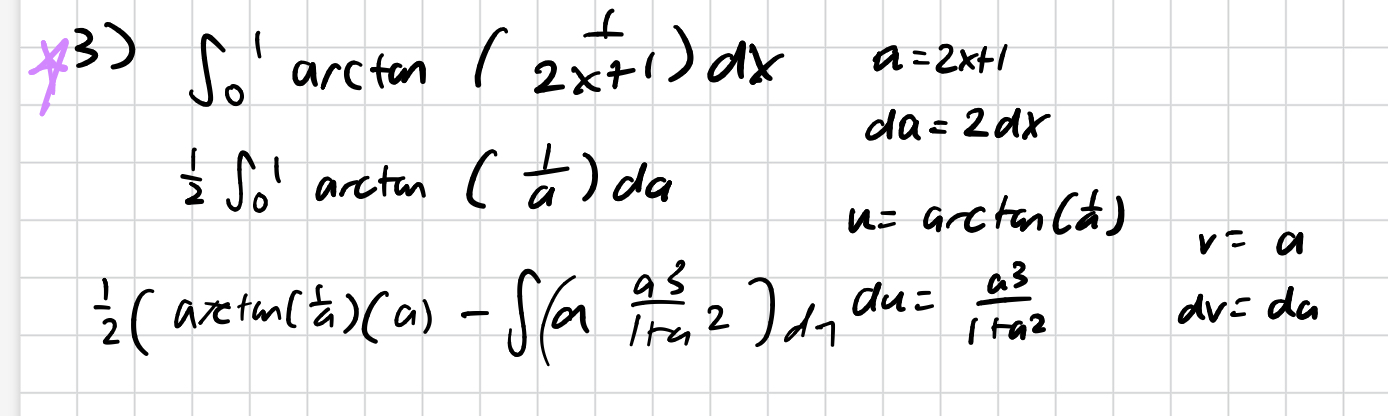 *3) ∫₀¹ arctan (1/(2x+1)) dx a = 2x+1
da = 2dx
1/2 ∫₀¹ arctan (1/a) da
u = arctan(1/a) v = a
1/2 ( arctan(1/a)(a) − ∫(a a³/(1+a²)) da du = a³/(1+a²) dv = da